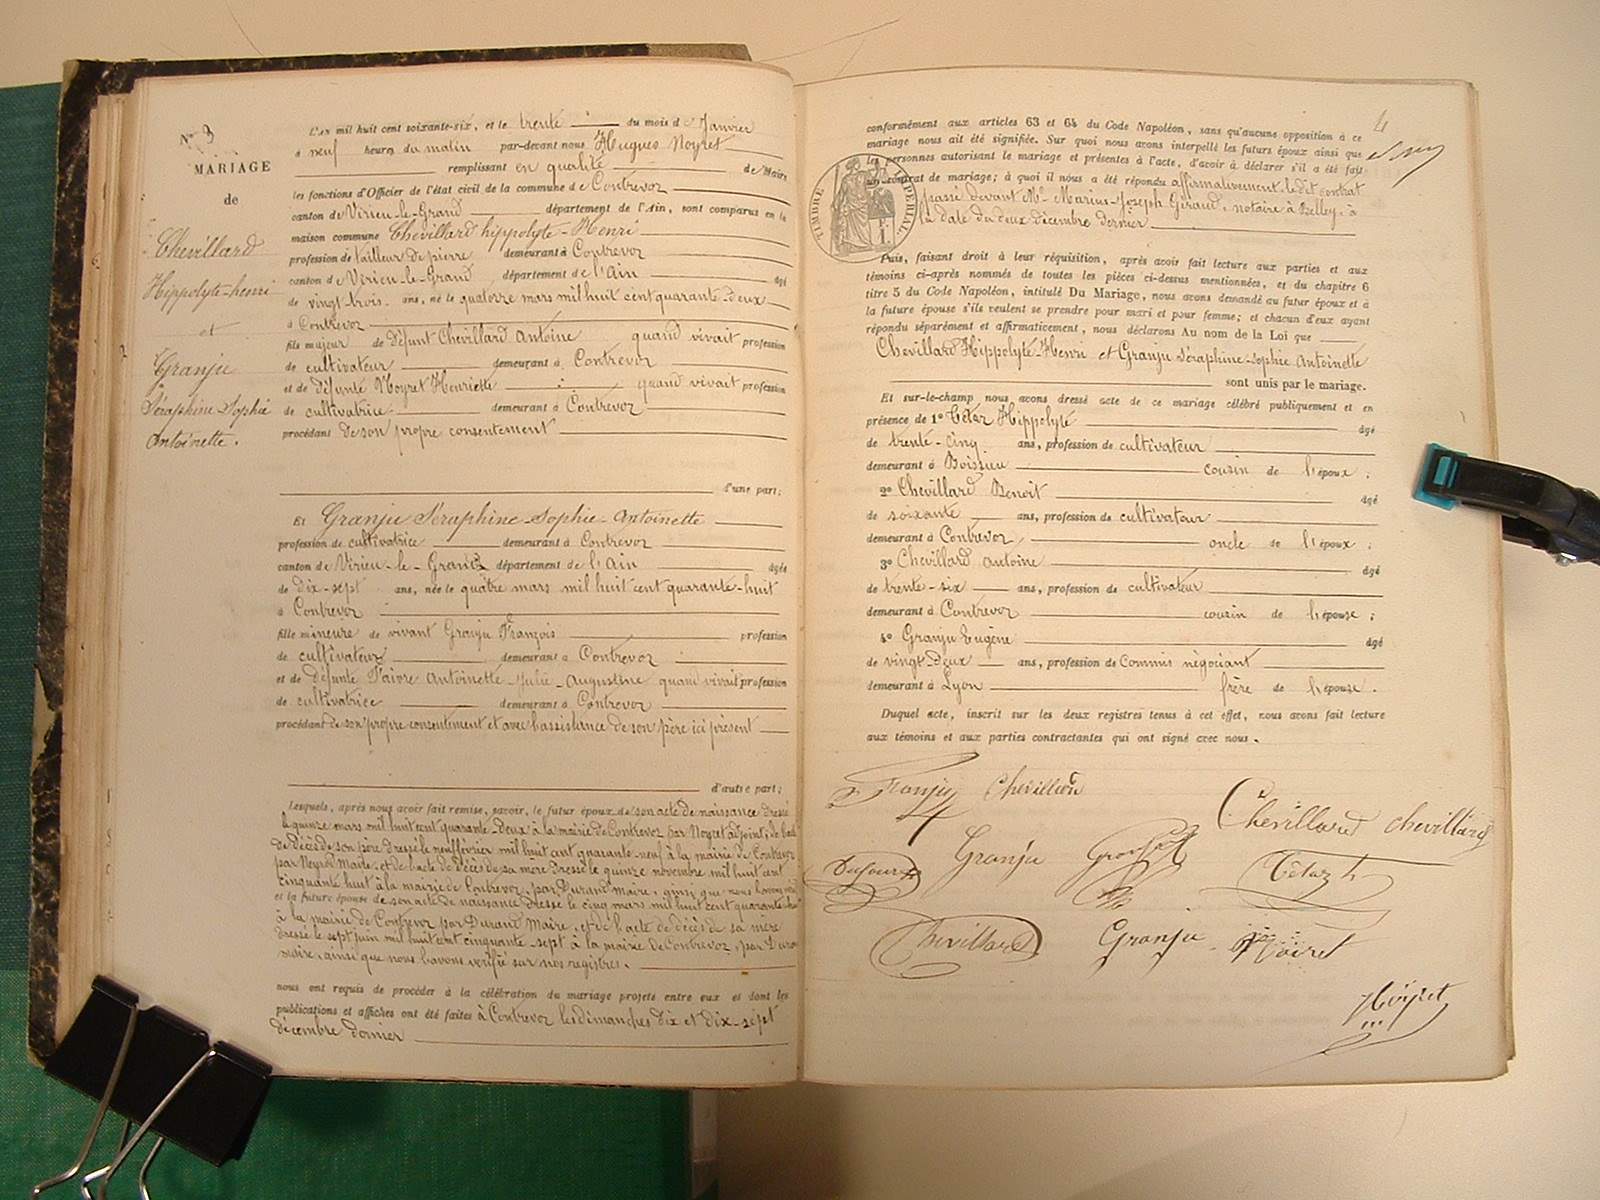 N° 3
MARIAGE
de
Chevillard
Hippolyte-henri
et
Granju
Séraphine Sophie
Antoinette.
L'an mil huit cent soixante-six, et le trente du mois de Janvier
à neuf heures du matin par-devant nous Hugues Noyret
remplissant en qualité de Maire
les fonctions d'Officier de l'état civil de la commune de Contrevoz
canton de Virieu-le-Grand département de l'Ain, sont comparus en la
maison commune Chevillard hippolyte-Henri
profession de tailleur de pierre demeurant à Contrevoz
canton de Virieu-le-Grand département de l'Ain âgé
de vingt-trois ans, né le quatorze mars mil huit cent quarante-deux
à Contrevoz
fils majeur de défunt Chevillard Antoine quand vivait profession
de cultivateur demeurant à Contrevoz
et de défunte Noyret Henriette quand vivait profession
de cultivatrice demeurant à Contrevoz
procédant de son propre consentement
d'une part;
Et Granju Séraphine-Sophie-Antoinette
profession de cultivatrice demeurant à Contrevoz
canton de Virieu-le-Grand département de l'Ain âgée
de dix-sept ans, née le quatre mars mil huit cent quarante-huit
à Contrevoz
fille mineure de vivant Granju François profession
de cultivateur demeurant à Contrevoz
et de défunte Faivre Antoinette-Julie-Augustine quand vivait profession
de cultivatrice demeurant à Contrevoz
procédant de son propre consentement et avec l'assistance de son père ici présent
d'autre part;
Lesquels, après nous avoir fait remise, savoir, le futur époux de son acte de naissance dressé
le quinze mars mil huit cent quarante-deux à la mairie de Contrevoz par Noyret adjoint; de l'acte
de décès de son père dressé le neuf février mil huit cent quarante-neuf à la mairie de Contrevoz
par Maire, et de l'acte de décès de sa mère dressé le quinze novembre mil huit cent
cinquante huit à la mairie de Contrevoz, par Durand maire, ainsi que nous l'avons
et la future épouse de son acte de naissance dressé le cinq mars mil huit cent quarante-huit
à la mairie de Contrevoz par Durand Maire, et de l'acte de décès de sa mère
dressé le sept juin mil huit cent cinquante-sept à la mairie de Contrevoz, par Durand
maire, ainsi que nous l'avons vérifié sur nos registres.
nous ont requis de procéder à la célébration du mariage projeté entre eux et dont les
publications et affiches ont été faites à Contrevoz les dimanches dix et dix-sept
décembre dernier
4
conformément aux articles 63 et 64 du Code Napoléon, sans qu'aucune opposition à ce
mariage nous ait été signifiée. Sur quoi nous avons interpellé les futurs époux ainsi que
les personnes autorisant le mariage et présentes à l'acte, d'avoir à déclarer s'il a été fait
un contrat de mariage; à quoi il nous a été répondu affirmativement, ledit contrat
passé devant Me Marius-Joseph Giraud, notaire à Belley, à
la date du deux décembre dernier
TIMBRE IMPÉRIAL
Puis, faisant droit à leur réquisition, après avoir fait lecture aux parties et aux
témoins ci-après nommés de toutes les pièces ci-dessus mentionnées, et du chapitre 6
titre 5 du Code Napoléon, intitulé Du Mariage, nous avons demandé au futur époux et à
la future épouse s'ils veulent se prendre pour mari et pour femme; et chacun d'eux ayant
répondu séparément et affirmativement, nous déclarons Au nom de la Loi que
Chevillard Hippolyte-Henri et Granju Séraphine-Sophie Antoinette
sont unis par le mariage.
Et sur-le-champ nous avons dressé acte de ce mariage célébré publiquement et en
présence de 1° Tétaz Hippolyte âgé
de trente-cinq ans, profession de cultivateur
demeurant à Boissieu cousin de l'époux;
2° Chevillard Benoit âgé
de soixante ans, profession de cultivateur
demeurant à Contrevoz oncle de l'époux;
3° Chevillard Antoine âgé
de trente-six ans, profession de cultivateur
demeurant à Contrevoz cousin de l'épouse;
4° Granju Eugène âgé
de vingt-deux ans, profession de Commis négociant
demeurant à Lyon frère de l'épouse.
Duquel acte, inscrit sur les deux registres tenus à cet effet, nous avons fait lecture
aux témoins et aux parties contractantes qui ont signé avec nous.
Granju Chevillard
Chevillard chevillard
Dufour Granju Tétaz h
Chevillard Granju Noiret
Noyret